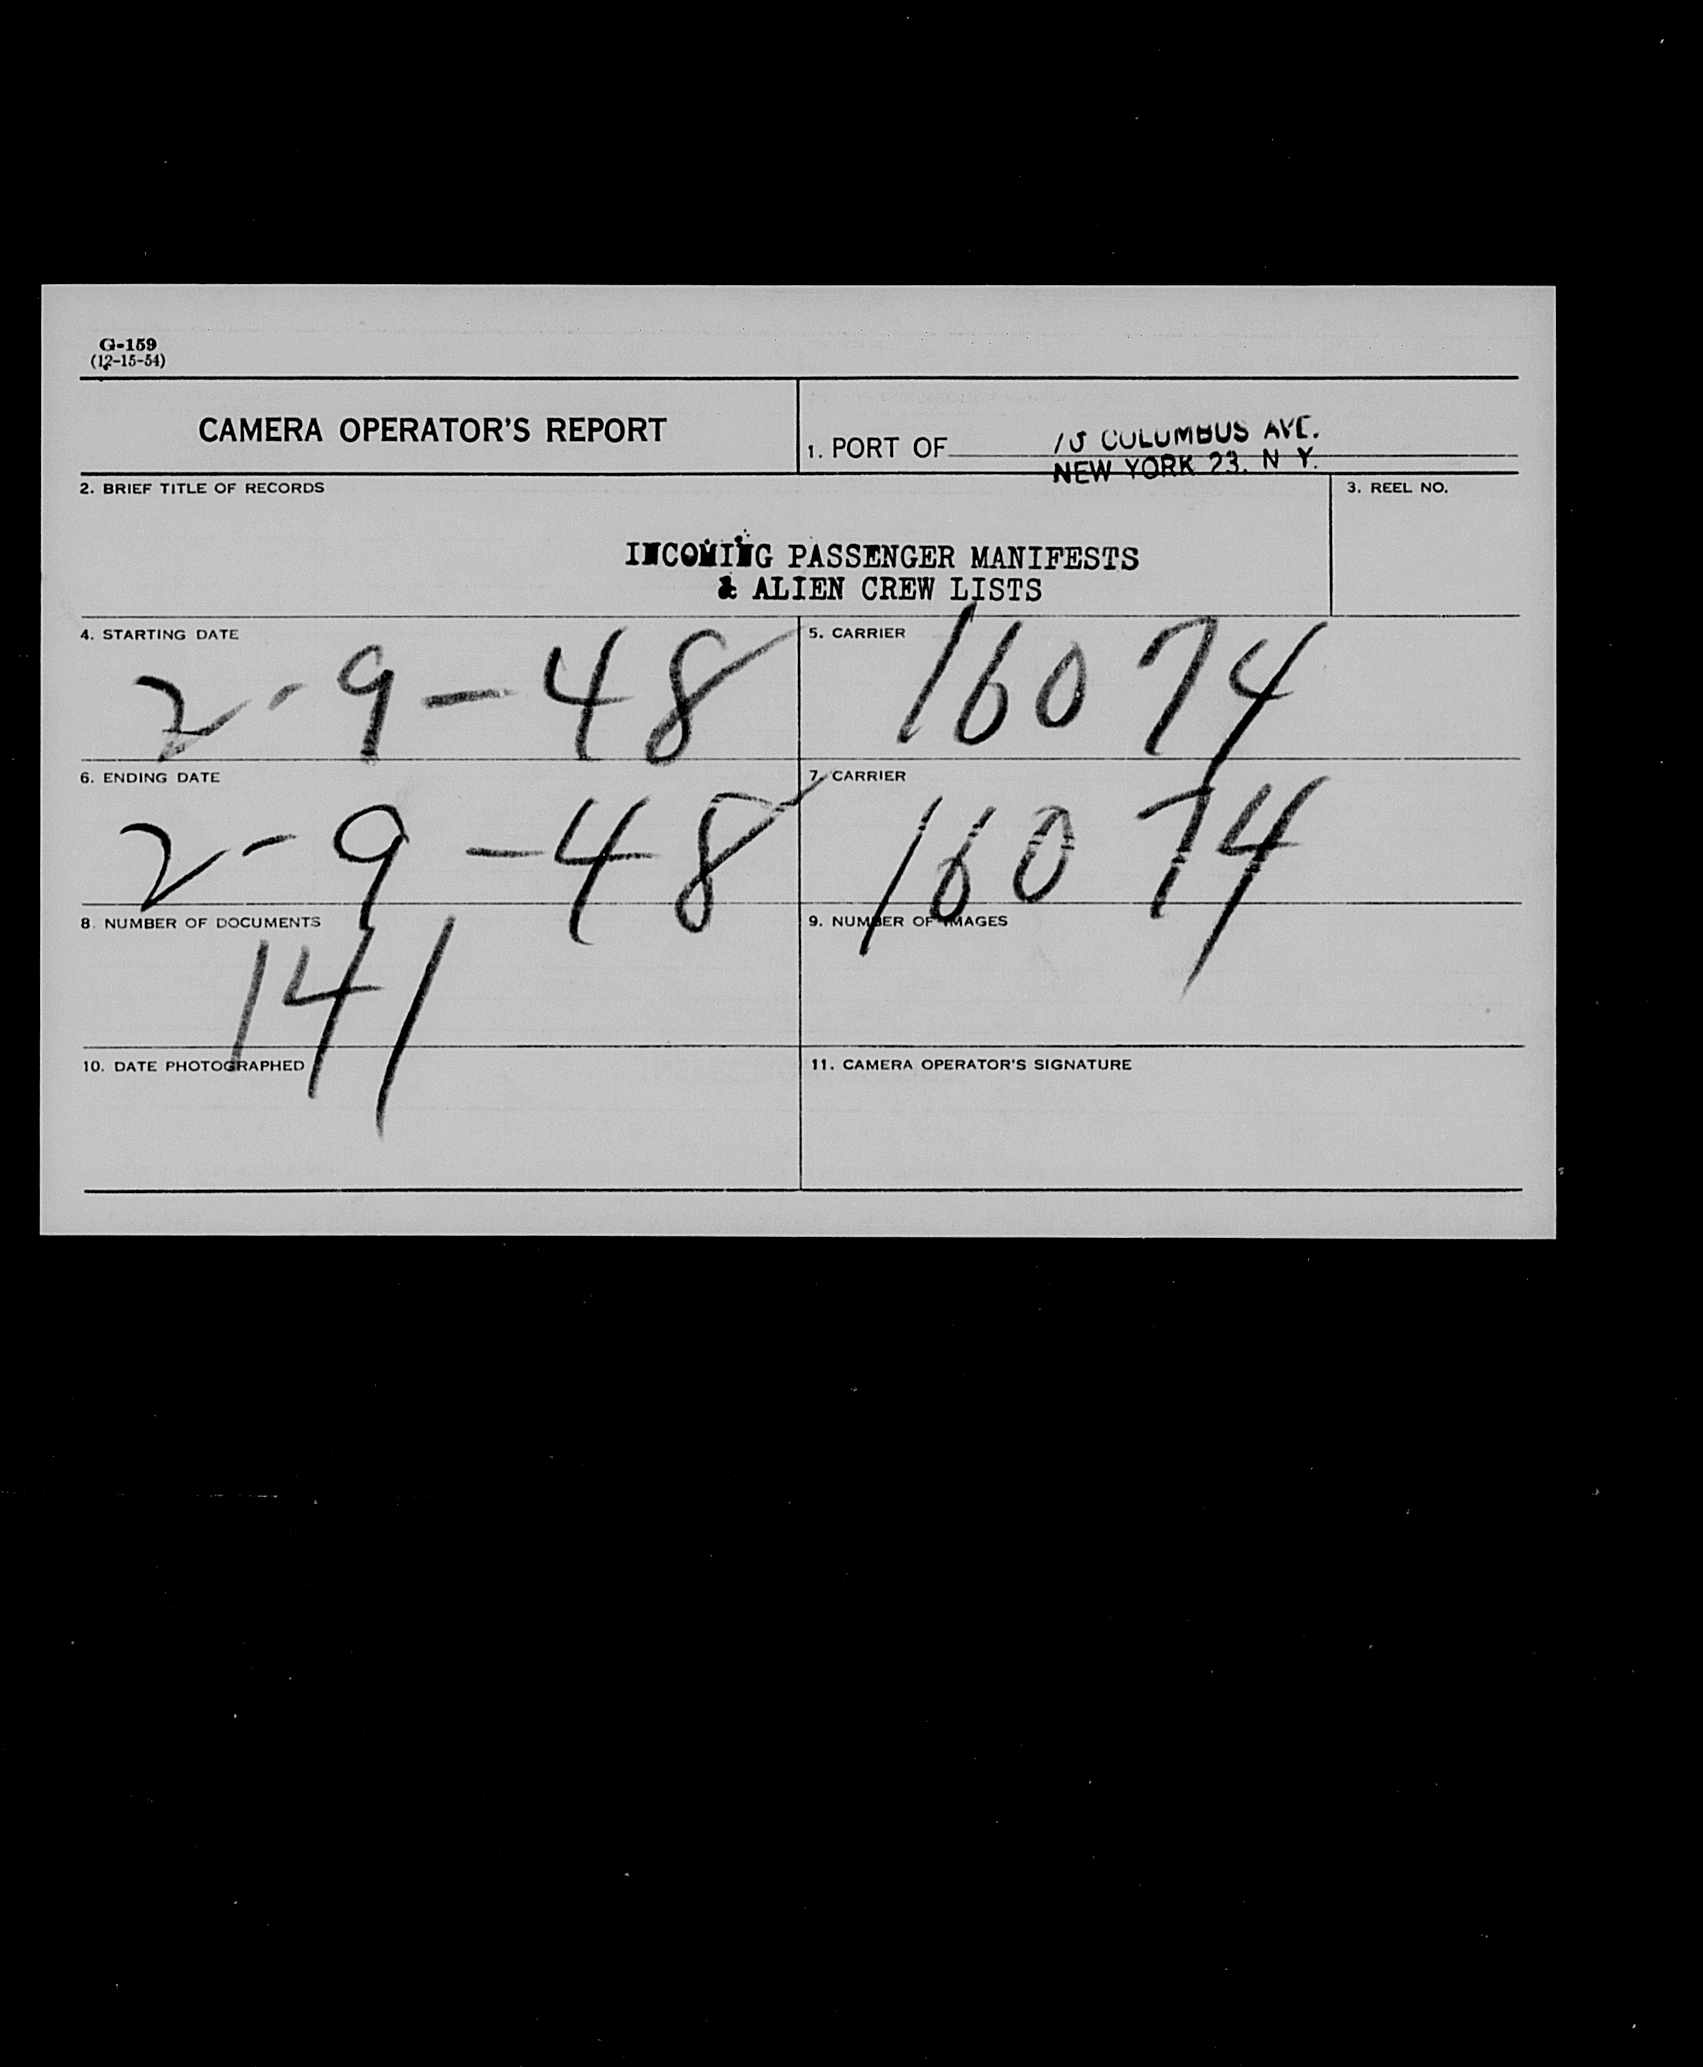 G-159
(12-15-54)
CAMERA OPERATOR'S REPORT
1. PORT OF 70 COLUMBUS AVE.
NEW YORK 23, N Y.
2. BRIEF TITLE OF RECORDS
3. REEL NO.
INCOMING PASSENGER MANIFESTS
& ALIEN CREW LISTS
4. STARTING DATE
2-9-48
5. CARRIER
16074
6. ENDING DATE
2-9-48
7. CARRIER
16074
8. NUMBER OF DOCUMENTS
141
9. NUMBER OF IMAGES
10. DATE PHOTOGRAPHED
11. CAMERA OPERATOR'S SIGNATURE